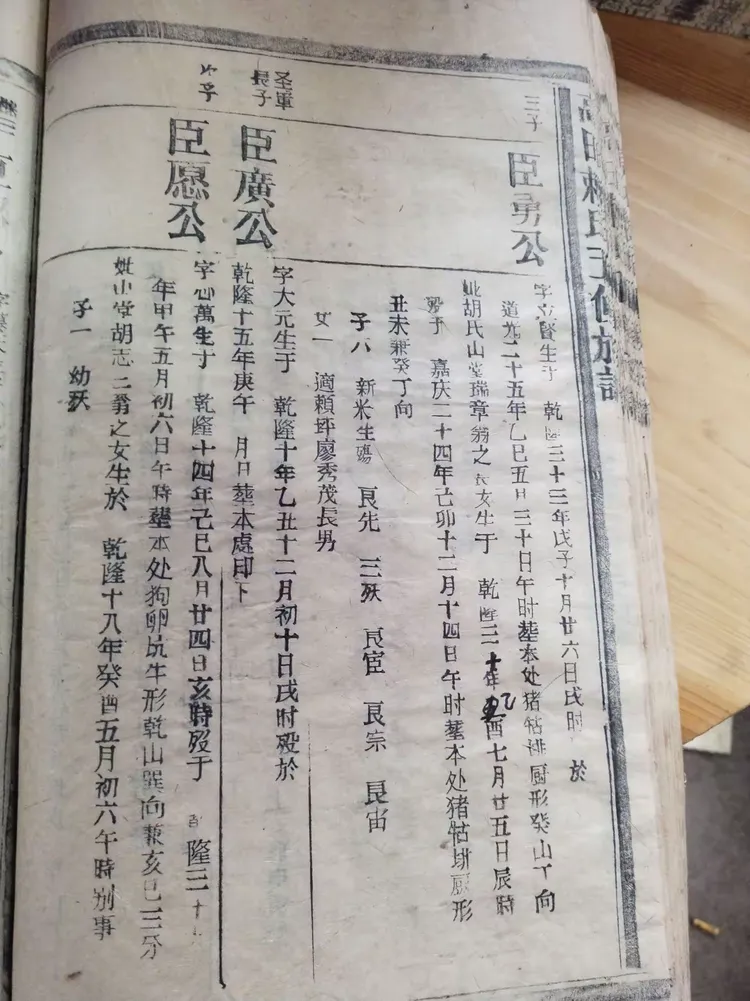 三子
臣勇公
字立賢生于 乾隆三十三年戊子十月廿六日戌时 於
道光二十五年乙巳五日三十日午时塟本处猪牯排厨形癸山丁向
妣胡氏山堂瑞章翁之長女生于 乾隆三十年乙酉七月廿五日辰時
殁于 嘉庆二十四年己卯十二月十四日午时塟本处猪牯排厨形
丑未兼癸丁向
子八 新米生殤 良先 三殀 良宦 良宗 良宙
女一 適賴坪廖秀茂長男
圣軍
長子
臣廣公
字大元生于 乾隆十年乙丑十二月初十日戌时殁於
乾隆十五年庚午 月日塟本處印下
次子
臣愿公
字忠萬生于 乾隆十四年己巳八月廿四日亥時殁于 隆三十
年甲午五月初六日午時塟本处狗卵坑牛形乾山巽向兼亥巳三分
妣山堂胡志二翁之女生於 乾隆十八年癸酉五月初六午時别事
子一 幼殀